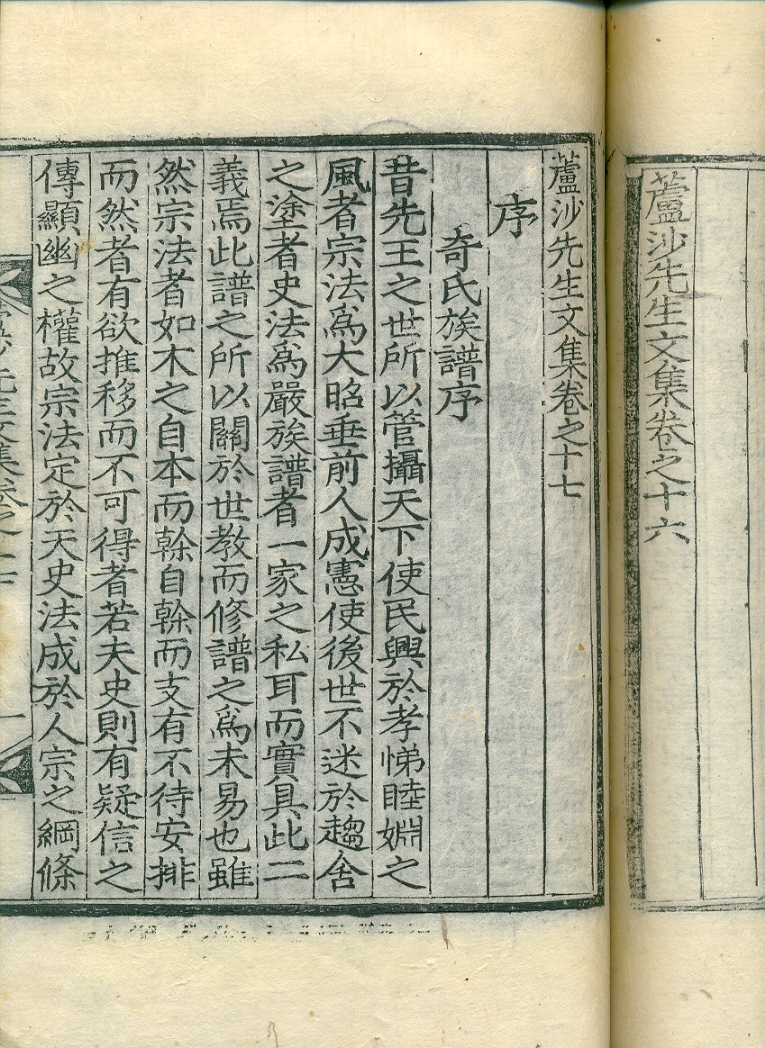 蘆沙先生文集卷之十六
蘆沙先生文集卷之十七
序
奇氏族譜序
昔先王之世所以管攝天下使民興於孝悌睦婣之
風者宗法爲大昭垂前人成憲使後世不迷於趨舍
之塗者史法爲嚴族譜者一家之私耳而實具此二
義焉此譜之所以關於世敎而修譜之爲未易也雖
然宗法者如木之自本而榦自榦而支有不待安排
而然者有欲推移而不可得者若夫史則有疑信之
傳顯幽之權故宗法定於天史法成於人宗之綱條